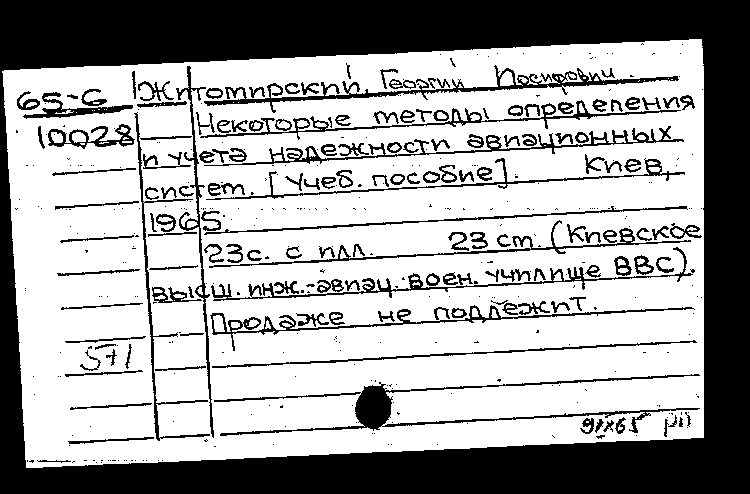 65-6 Житомирский, Георгий Иосифович.
10028 Некоторые методы определения
и учета надежности авиационных
систем. [Учеб. пособие]. Киев,
1965.
23с. с илл. 23 ст. (Киевское
высш. инж.-авиац. воен. училище ВВС).
Продаже не подлежит.
571